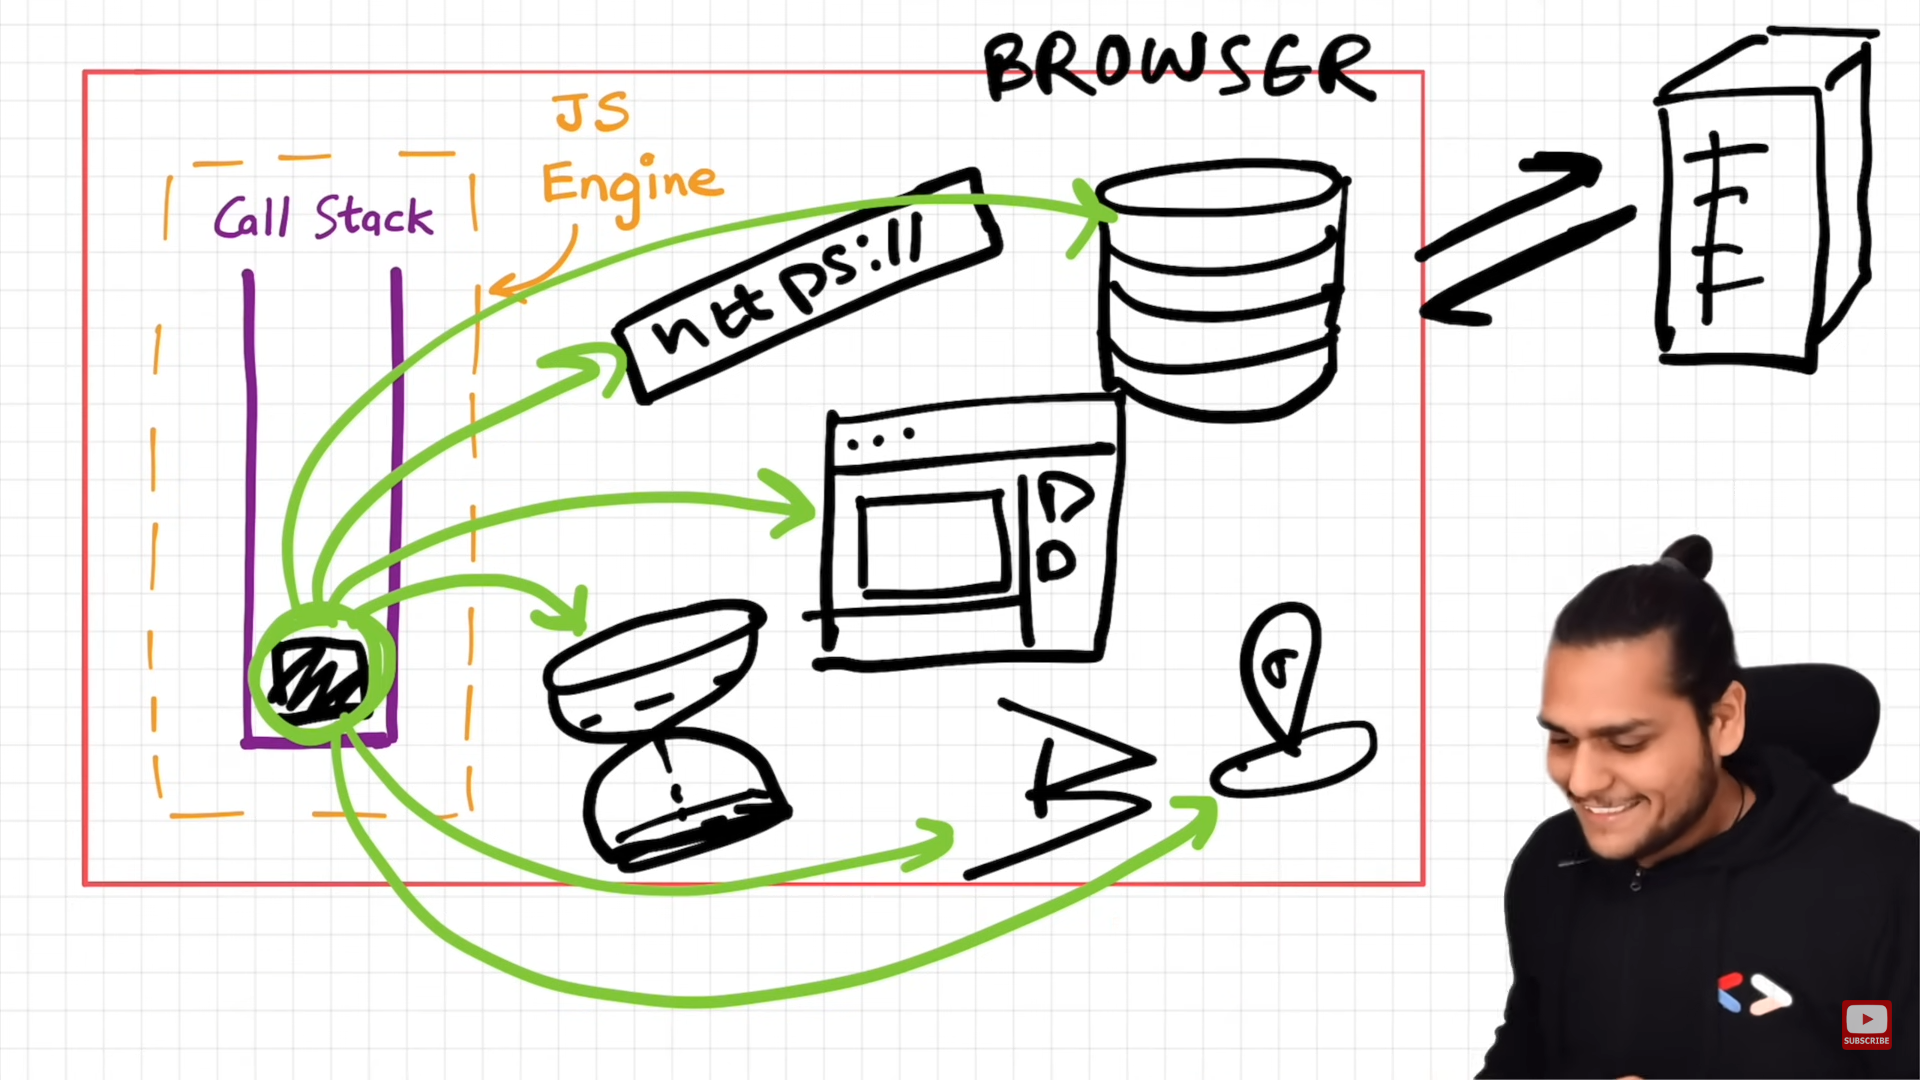 BROWSER
JS
Engine
Call Stack
https://
SUBSCRIBE